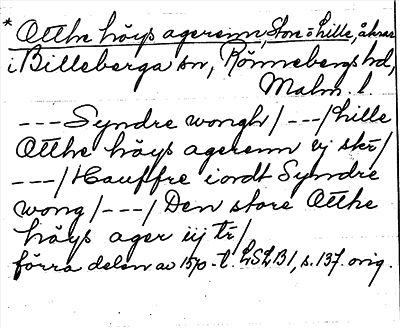 * Otthe höys agerenn, Store o lille, åkrar
i Billeberga sn, Rönnebergs hd,
Malm. l.
---Syndre wongh/---/hille
Otthe höys agerenn vj skr/
---/Hauffre iordt Syndre
wong/---/Den store Otthe
höys ager iij tr/
förra delen av 1570-t. LSLB1, s. 137. orig.